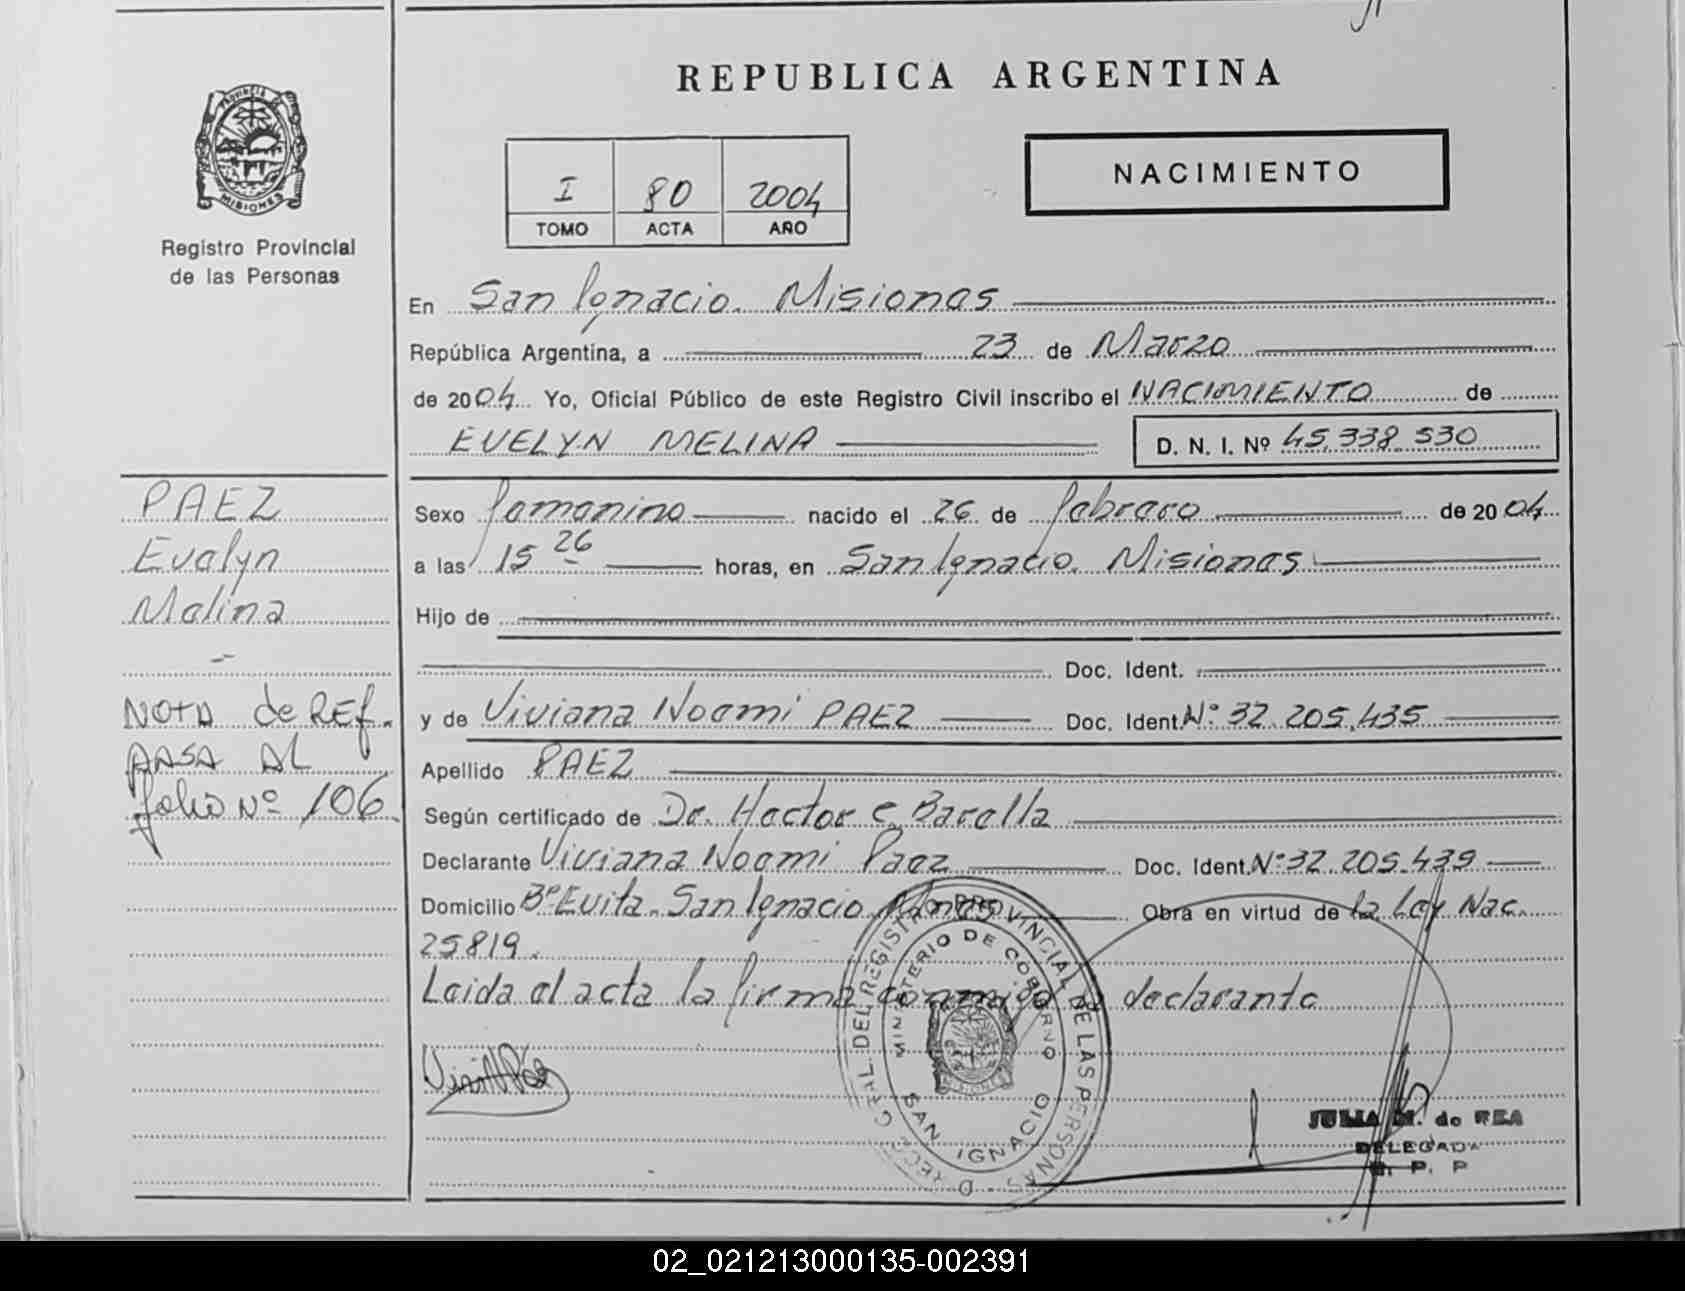 REPUBLICA ARGENTINA
PROVINCIA DE
MISIONES
Registro Provincial
de las Personas
I 80 2004
TOMO ACTA AÑO
NACIMIENTO
En San Ignacio. Misiones
República Argentina, a 23 de Marzo
de 2004 Yo, Oficial Público de este Registro Civil inscribo el NACIMIENTO de
EVELYN MELINA D. N. I. Nº 45.338.530
PAEZ
Evelyn
Melina
NOTA de REF.
PASA AL
folio Nº 106
Sexo femenino nacido el 26 de febrero de 2004
a las 15 26 horas, en San Ignacio. Misiones
Hijo de
Doc. Ident.
y de Viviana Noemi PAEZ Doc. Ident. Nº 32.205.435
Apellido PAEZ
Según certificado de Dr. Hector C. Barella
Declarante Viviana Noemi Paez Doc. Ident. Nº 32.205.439
Domicilio Bº Evita. San Ignacio. Mnes Obra en virtud de la Ley Nac.
25819.
Leida el acta la firma conmigo la declarante
DIRECC. GRAL. DEL REGISTRO PROVINCIAL DE LAS PERSONAS
MINISTERIO DE GOBIERNO
MISIONES
SAN IGNACIO
JULIA M. de REA
DELEGADA
R. P. P
02_021213000135-002391